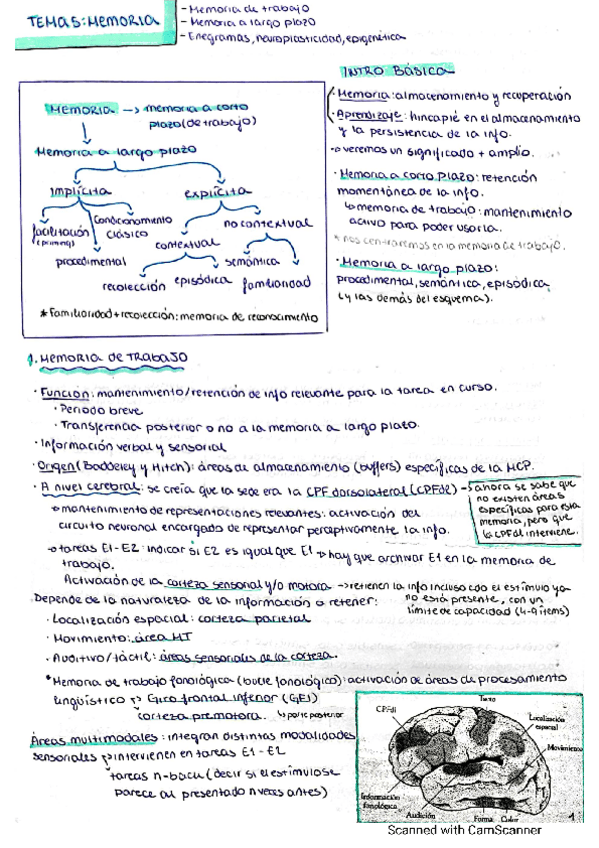 TEMA 5: MEMORIA
- Memoria de trabajo
- Memoria a largo plazo
- Enegramas, neuroplasticidad, epigenética
MEMORIA -> memoria a corto
plazo (de trabajo)
Memoria a largo plazo
Implícita
explícita
facilitación
(priming)
condicionamiento
clásico
procedimental
contextual
no contextual
recolección
episódica
semántica
familiaridad
* Familiaridad + recolección: memoria de reconocimiento
INTRO BÁSICA
· Memoria: almacenamiento y recuperación
· Aprendizaje: hincapié en el almacenamiento
y la persistencia de la info.
veremos un significado + amplio.
· Memoria a corto plazo: retención
momentánea de la info.
↳ memoria de trabajo: mantenimiento
activo para poder usarla.
* nos centraremos en la memoria de trabajo.
· Memoria a largo plazo:
procedimental, semántica, episódica
(y las demás del esquema).
1. MEMORIA DE TRABAJO
· Función: mantenimiento/retención de info relevante para la tarea en curso.
· Periodo breve
· Transferencia posterior o no a la memoria a largo plazo.
· Información verbal y sensorial
· Origen (Baddeley y Hitch): áreas de almacenamiento (buffers) específicas de la MCP.
· A nivel cerebral: se creía que la sede era la CPF dorsolateral (CPFdl) -> ahora se sabe que
no existen áreas
específicas para esta
memoria, pero que
la CPFdl interviene.
mantenimiento de representaciones relevantes: activación del
circuito neuronal encargado de representar perceptivamente la info.
tareas E1-E2: indicar si E2 es igual que E1 -> hay que archivar E1 en la memoria de
trabajo.
Activación de la corteza sensorial y/o motora -> retienen la info incluso cdo el estímulo ya
no está presente, con un
límite de capacidad (4-9 items)
Depende de la naturaleza de la información a retener:
· Localización espacial: corteza parietal
· Movimiento: área MT
· Auditivo/táctil: áreas sensoriales de la corteza.
* Memoria de trabajo fonológica (bucle fonológico): activación de áreas de procesamiento
lingüístico
Giro frontal inferior (GFI)
↳ parte posterior
corteza premotora.
Áreas multimodales: integran distintas modalidades
sensoriales
intervienen en tareas E1-E2
tareas n-back (decir si el estímulo se
parece al presentado n veces antes)
CPFdl
Tacto
Localización
espacial
Movimiento
Información
fonológica
Audición
Forma
Color
1
Scanned with CamScanner